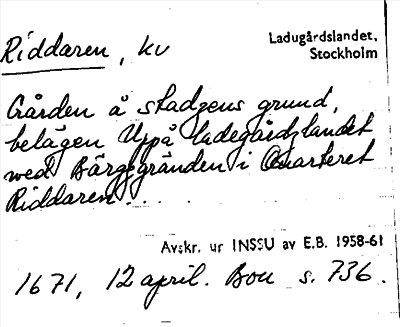 Riddaren, kv
Ladugårdslandet,
Stockholm
Gården å stadzens grund,
belägen Uppå ladegårdzlandet
wed Bärgzgränden i Quarteret
Riddaren....
Avskr. ur INSSU av E.B. 1958-61
1671, 12 april. Bou s. 736.